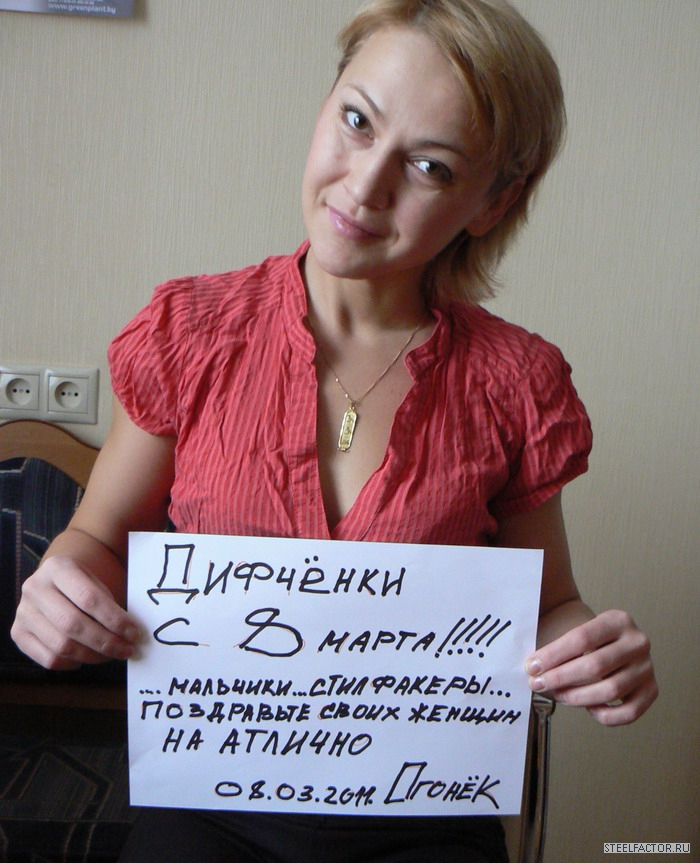 www.greenplant.by
Дифчёнки
с 8 марта!!!!!
... мальчики...стилфакеры...
поздравьте своих женщин
на атлично
08.03.2011. Огонёк
STEELFACTOR.RU